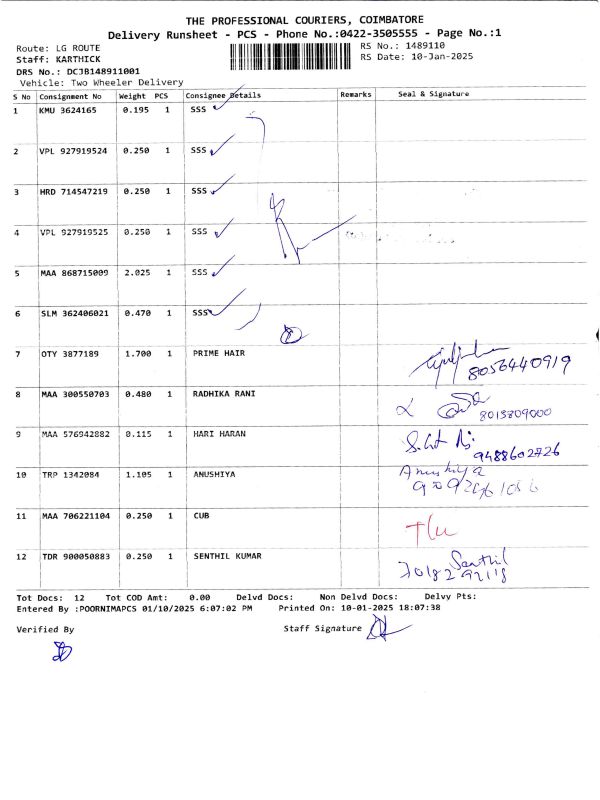 THE PROFESSIONAL COURIERS, COIMBATORE
Delivery Runsheet - PCS - Phone No.:0422-3505555 - Page No.:1
Route: LG ROUTE
RS No.: 1489110
Staff: KARTHICK
RS Date: 10-Jan-2025
DRS No.: DCJB148911001
Vehicle: Two Wheeler Delivery
S No Consignment No Weight PCS Consignee Details Remarks Seal & Signature
1 KMU 3624165 0.195 1 SSS
2 VPL 927919524 0.250 1 SSS
3 HRD 714547219 0.250 1 SSS
4 VPL 927919525 0.250 1 SSS
5 MAA 868715009 2.025 1 SSS
6 SLM 362406021 0.470 1 SSS
7 OTY 3877189 1.700 1 PRIME HAIR 8056440919
8 MAA 300550703 0.480 1 RADHIKA RANI 8013809000
9 MAA 576942882 0.115 1 HARI HARAN 9488602726
10 TRP 1342084 1.105 1 ANUSHIYA Anushiya
11 MAA 706221104 0.250 1 CUB
12 TDR 900050883 0.250 1 SENTHIL KUMAR Senthil
Tot Docs: 12 Tot COD Amt: 0.00 Delvd Docs: Non Delvd Docs: Delvy Pts:
Entered By :POORNIMAPCS 01/10/2025 6:07:02 PM Printed On: 10-01-2025 18:07:38
Verified By Staff Signature